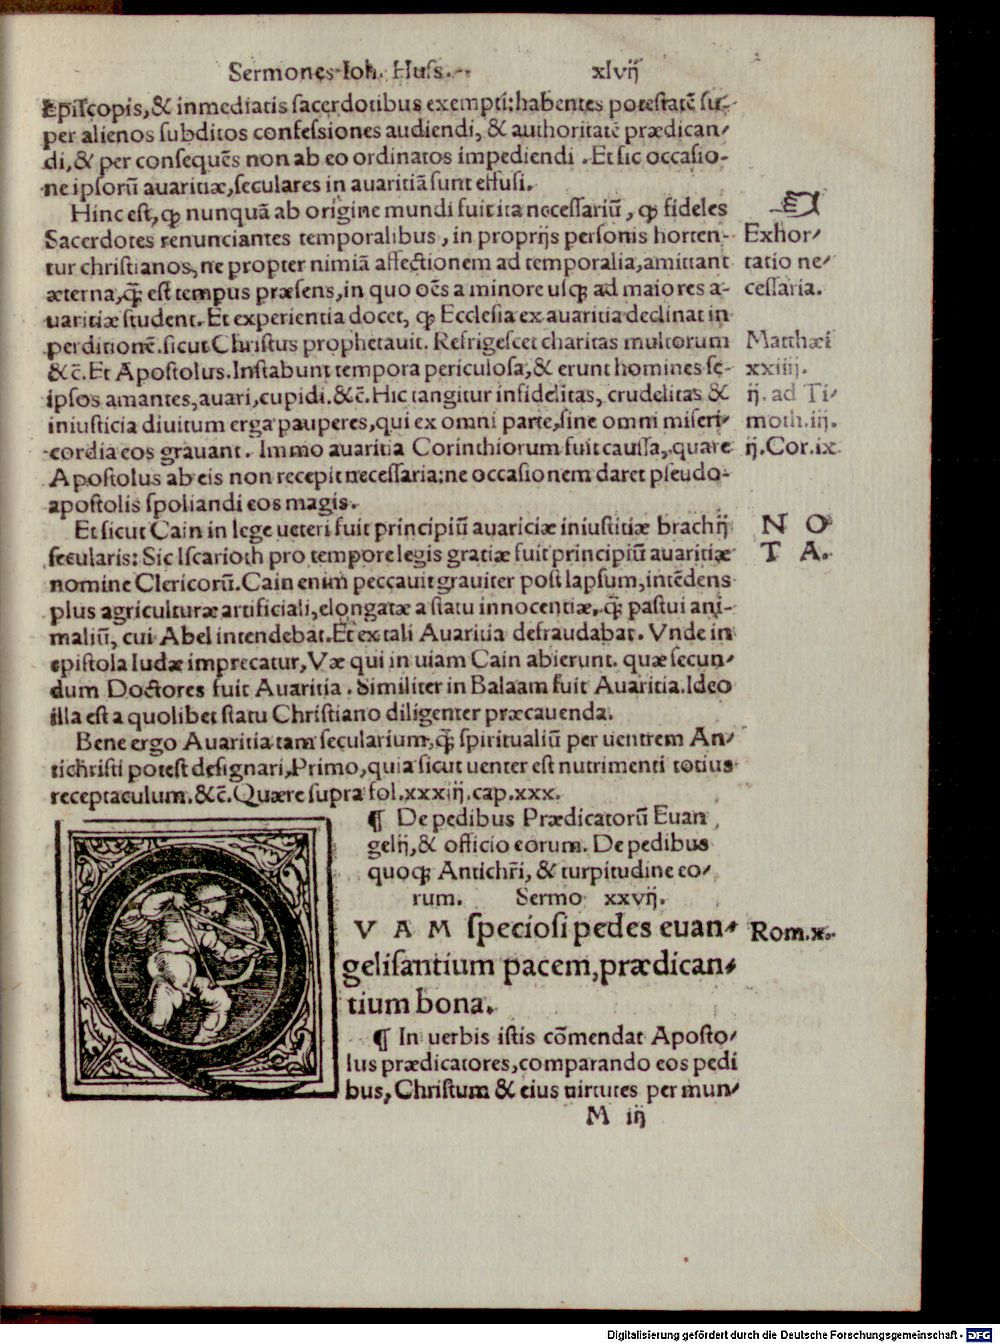 Sermones Ioh. Huss. xlvij
Episcopis, & inmediatis sacerdotibus exempti: habentes potestatē su-
per alienos subditos confessiones audiendi, & authoritatē prædican/
di, & per consequēs non ab eo ordinatos impediendi . Et sic occasio-
ne ipsorū auaritiæ, seculares in auaritiā sunt effusi.
Hinc est, ꝙ nunquā ab origine mundi fuit ita necessariū, ꝙ fideles
Sacerdotes renunciantes temporalibus, in proprijs personis horten-
tur christianos, ne propter nimiā affectionem ad temporalia, amittant
æterna, q̄ꝫ est tempus præsens, in quo oēs a minore usqꝫ ad maiores a-
uaritiæ student. Et experientia docet, ꝙ Ecclesia ex auaritia declinat in
perditionē. sicut Christus prophetauit. Refrigescet charitas multorum
&c̄. Et Apostolus. Instabunt tempora periculosa, & erunt homines se-
ipsos amantes, auari, cupidi. &c̄. Hic tangitur infidelitas, crudelitas &
iniusticia diuitum erga pauperes, qui ex omni parte, sine omni miseri-
cordia eos grauant. Immo auaritia Corinthiorum fuit caussa, quare
Apostolus ab eis non recepit necessaria: ne occasionem daret pseudo-
apostolis spoliandi eos magis.
Exhor/
tatio ne/
cessaria.
Matthæi
xxiiij.
ij. ad Ti/
moth. iij.
ij. Cor. ix
Et sicut Cain in lege ueteri fuit principiū auariciæ iniustitiæ brachij
secularis: Sic Iscarioth pro tempore legis gratiæ fuit principiū auaritiæ
nomine Clericorū. Cain enim peccauit grauiter post lapsum, intēdens
plus agriculturæ artificiali, elongatæ a statu innocentiæ, q̄ꝫ pastui ani-
maliū, cui Abel intendebat. Et ex tali Auaritia defraudabat. Vnde in
epistola Iudæ imprecatur, Væ qui in uiam Cain abierunt. quæ secun/
dum Doctores fuit Auaritia . Similiter in Balaam fuit Auaritia. Ideo
illa est a quolibet statu Christiano diligenter præcauenda.
N O
T A.
Bene ergo Auaritia tam secularium, q̄ꝫ spiritualiū per uentrem An/
tichristi potest designari, Primo, quia sicut uenter est nutrimenti totius
receptaculum. &c̄. Quære supra fol. xxxiij. cap. xxx.
¶ De pedibus Prædicatorū Euan
gelij, & officio eorum. De pedibus
quoqꝫ Antichr̄i, & turpitudine eo/
rum. Sermo xxvij.
QVAM speciosi pedes euan/
gelisantium pacem, prædican/
tium bona.
Rom. x.
¶ In uerbis istis cōmendat Aposto/
lus prædicatores, comparando eos pedi
bus, Christum & eius uirtutes per mun/
M iij
Digitalisierung gefördert durch die Deutsche Forschungsgemeinschaft - DFG